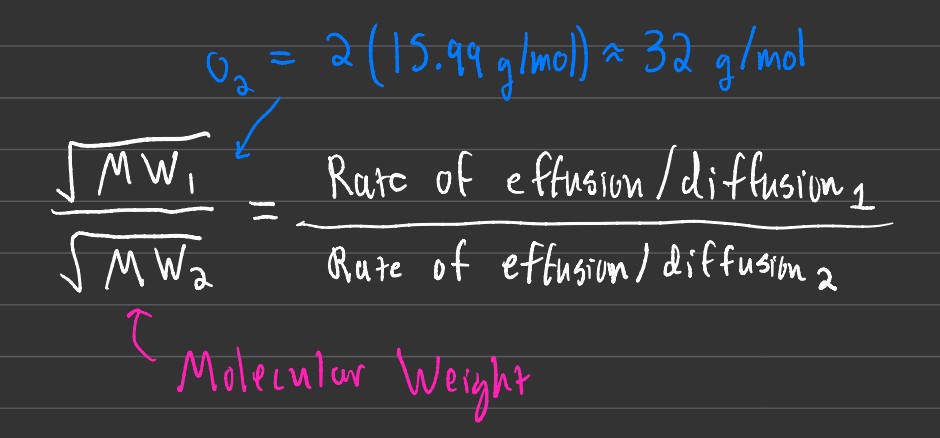 O₂ = 2 (15.99 g/mol) ≈ 32 g/mol
√MW₁ / √MW₂ = Rate of effusion/diffusion₁ / Rate of effusion/diffusion₂
Molecular Weight